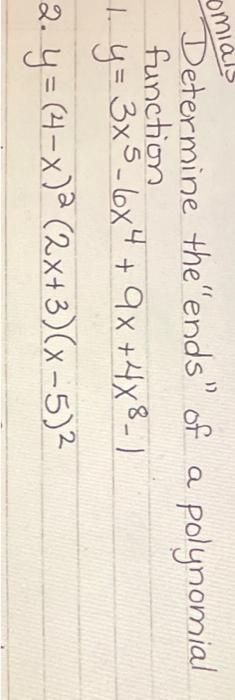 omials
Determine the "ends" of a polynomial
function
1. y = 3x⁵ - 6x⁴ + 9x + 4x⁸ - 1
2. y = (4-x)² (2x+3)(x-5)²